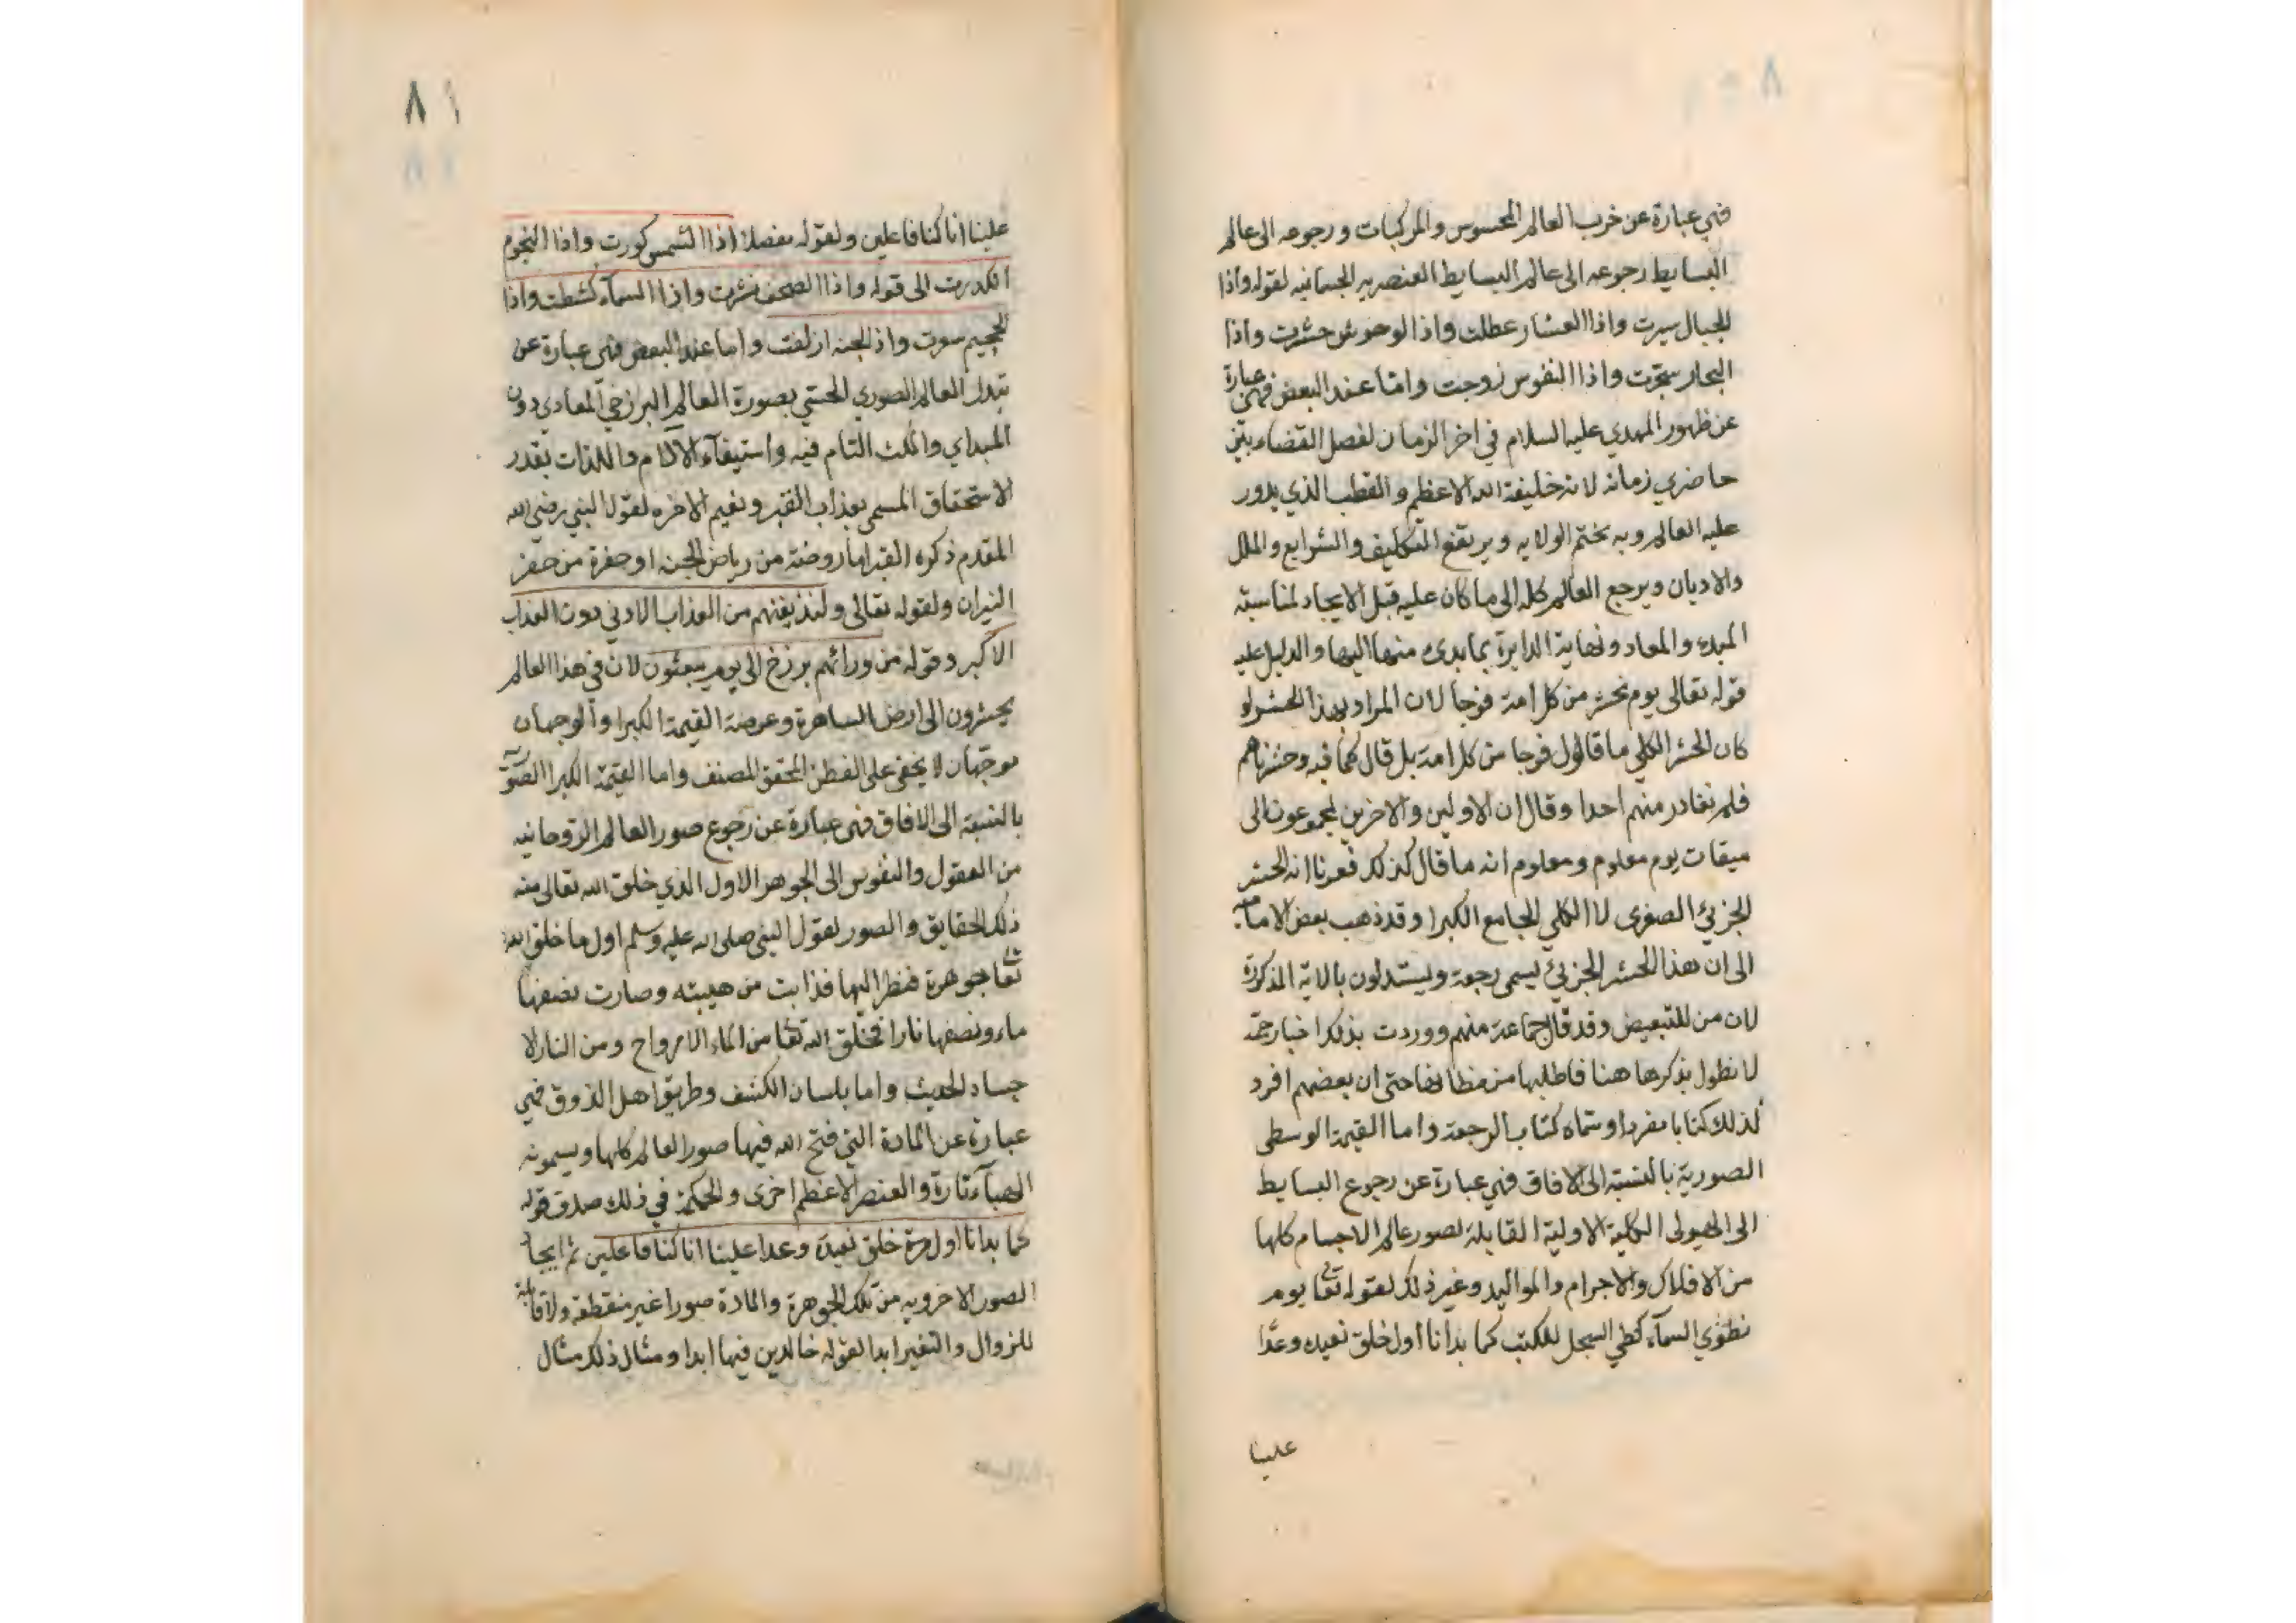 فهي عبارة عن خرب العالم المحسوس والمركبات ورجوعه الى عالم
البسايط رجوعه الى عالم البسايط العنصريه الجسمانيه لقوله واذا
الجبال سيرت واذا العشار عطلت واذا الوحوش حشرت واذا
البحار سجرت واذا النفوس زوجت وامّا عند البعض فهي عبارة
عن ظهور المهدي عليه السلام في اخر الزمان لفصل القضاء بين
حاضري زمانه لانه خليفة الله الاعظم والقطب الذي يدور
عليه العالم وبه يختم الولايه ويرتفع التكليف والشرايع والملل
والاديان ويرجع العالم كله الى ما كان عليه قبل الايجاد لمناسبته
المبدء والمعاد ونهاية الدايرة بما بدى منها اليها والدليل عليه
قوله تعالى يوم نحشر من كل امة فوجا لان المراد بهذا الحشر لو
كان الحشر الكلي ما قال فوجا من كل امة بل قال كما فيه وحشرناهم
فلم نغادر منهم احدا وقال ان الاولين والاخرين لمجموعون الى
ميقات يوم معلوم ومعلوم انه ما قال كذلك فعرفنا انه الحشر
الجزئ الصغرى لا الكلي الجامع الكبرا وقد ذهب بعض الامامية
الى ان هذا الحشر الجزئ يسمى رجعة ويستدلون بالاية المذكورة
لان من للتبعيض وقد قال جماعة منهم ووردت بذلك اخبار جمّة
لا نطول بذكرها هنا فاطلبها من مظانها حتى ان بعضهم افرد
لذلك كتابا مفردا وسماه كتاب الرجعة واما القيمة الوسطى
الصورية بالنسبة الى الافاق فهي عبارة عن رجوع البسايط
الى الهيولى الكلية الاولية القابلة لصور عالم الاجسام كلها
من الافلاك والاجرام والمواليد وغير ذلك لقوله تعا يوم
نطوي السمآء كطي السجل للكتب كما بدانا اول خلق نعيده وعدًا
علينا
٨١
علينا انا كنا فاعلين ولقوله مفصلا اذا الشمس كورت واذا النجوم
انكدرت الى قوله واذا الصحف نشرت واذا السمآء كشطت واذا
الجحيم سعرت واذ الجنه ازلفت واما عند البعض فهي عبارة عن
تبدل العالم الصوري الحسّي بصورة العالم البرزخي المعادي دون
المبداي والمكث التام فيه واستيفآء الآلام واللذات بقدر
الاستحقاق المسمى بعذاب القبر ونعيم الاخره لقول النبي رضي الله
المقدم ذكره القبر اما روضة من رياض الجنه او حفرة من حفر
النيران ولقوله تعالى ولنذيقنهم من العذاب الادنى دون العذاب
الاكبر وقوله من ورائهم برزخ الى يوم يبعثون لان في هذا العالم
يحشرون الى ارض الساهرة وعرصة القيمة الكبرا والوجهان
موجّهان لا يخفى على الفطن المحقق المصنف واما القيمة الكبرا الصوّ
بالنسبة الى الافاق فهي عبارة عن رجوع صور العالم الروحانيه
من العقول والنفوس الى الجوهر الاول الذي خلق الله تعالى منه
ذلك الحقايق والصور لقول النبي صلى الله عليه وسلم اول ما خلق الله
تعا جوهرة فنظر اليها فذابت من هيبته وصارت نصفها
ماء ونصفها نارا فخلق الله تعا من الماء الارواح ومن النار الا
جساد الحديث واما بلسان الكشف وطريق اهل الذوق فهي
عبارة عن المادة التي فتح الله فيها صور العالم كلها ويسمونه
الهبآء تارة والعنصر الاعظم اخرى والحكمة في ذلك صدق قوله
كما بدانا اول مرة خلق نعيده وعدا علينا انا كنا فاعلين ثم ايجا
الصور الاخرويه من تلك الجوهرة والمادة صورا غير منقطعة ولا قابلة
للزوال والتغير ابدا لقوله خالدين فيها ابدا ومثال ذلك مثال